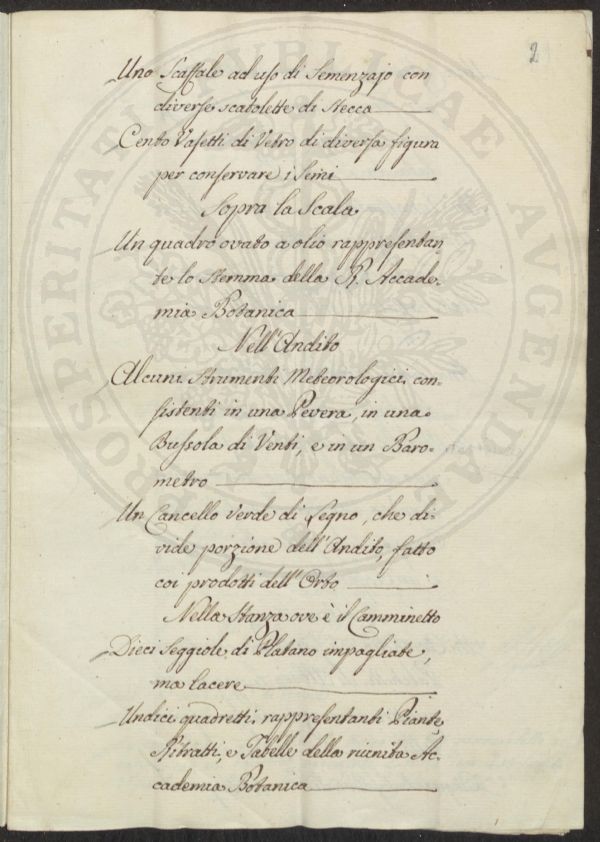 2
Uno Scaffale ad uso di Semenzajo con
diverse scatolette di Stecca
Cento Vasetti di Vetro di diversa figura
per conservare i Semi
Sopra la Scala
Un quadro ovato a olio rappresentan-
te lo Stemma della R. Accade-
mia Botanica
Nell'Andito
Alcuni Strumenti Meteorologici, con-
sistenti in una Pevera, in una
Bussola di Venti, e in un Baro-
metro
Un Cancello verde di Legno, che di-
vide porzione dell'Andito, fatto
coi prodotti dell'Orto
Nella Stanza ove è il Camminetto
Dieci Seggiole di Platano impagliate,
ma lacere
Undici quadretti, rappresentanti Piante,
Ritratti, e Tabelle della riunita Ac-
cademia Botanica
PROSPERITATI PUBLICAE AUGENDAE